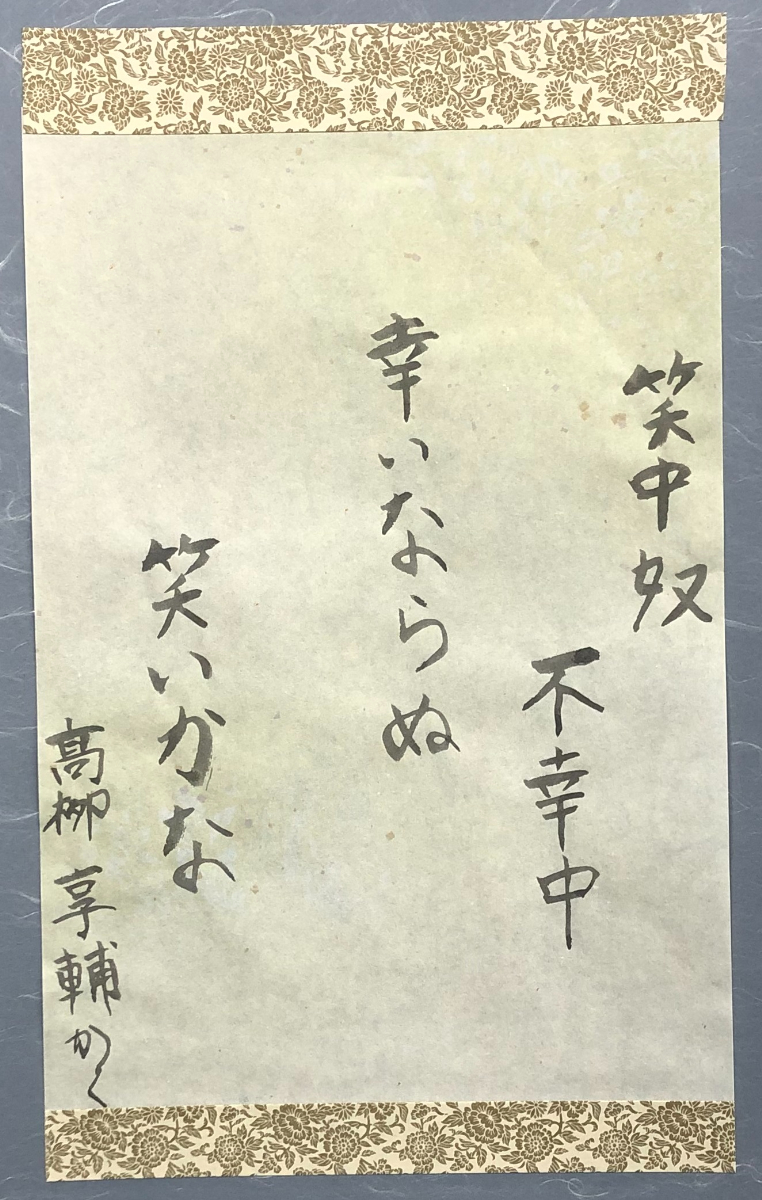 笑中奴
不幸中
幸いならぬ
笑いかな
髙柳 享輔かく